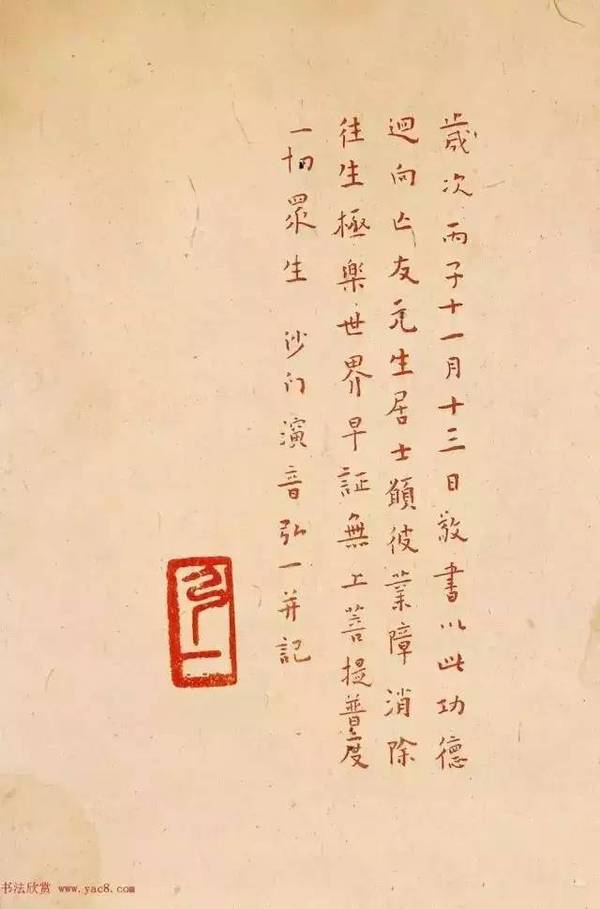 歲次丙子十一月十三日敬書以此功德
迴向亡友元生居士願彼業障消除
往生極樂世界早証無上菩提普度
一切眾生 沙门演音弘一并記
弘一
书法欣赏 www.yac8.com